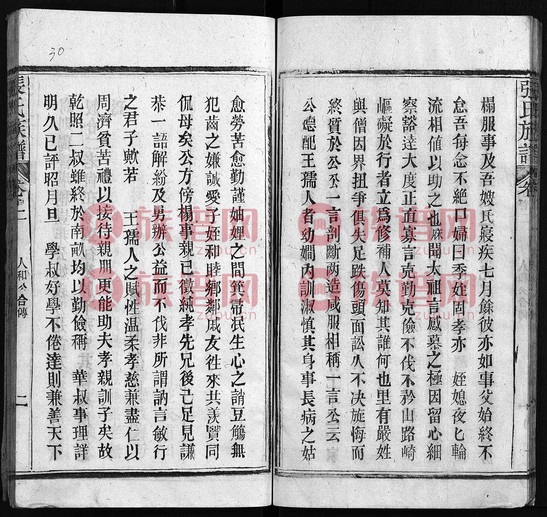 榻服事及吾嫂氏寢疾七月餘彼亦如事父始終不
怠吾每念不絶口婦曰季姪固孝亦 姪媳夜匕輪
流相值以助之也厥聞太祖言感慕之極因留心細
察豁達大度正直寡言克勤克儉不伐不矜山路崎
嶇礙於行者立爲修補人莫知其誰何也里有嚴姓
與僧因界扭爭俱失足跌傷頭面訟八不决旋悔而
終質於公公一言剖斷兩造咸服相稱一言公云
公德配王孺人者幼嫺内訓淑慎其身事長病之姑
愈勞苦愈勤謹妯娌之間箕帚泯生心之誚豆觴無
犯齒之嫌誡愛子姪和睦鄉鄰戚友徃來共羨賢同
侃母矣公方傍榻事親已徵純孝先兄後己足見謙
恭一語解紛及男辦公益而不伐非所謂訥言敏行
之君子歟若 王孺人之賦性温柔孝慈兼盡仁以
周濟貧苦禮以接待親朋更能助夫孝親訓子矣故
乾昭二叔雖終於南畝均以勤儉稱 華叔事理詳
明久已評昭月旦 學叔好學不倦達則兼善天下
張氏族譜
卷
人和公合傳
二
張氏族譜
卷
30
族譜網
zupu.cn
族譜網
zupu.cn